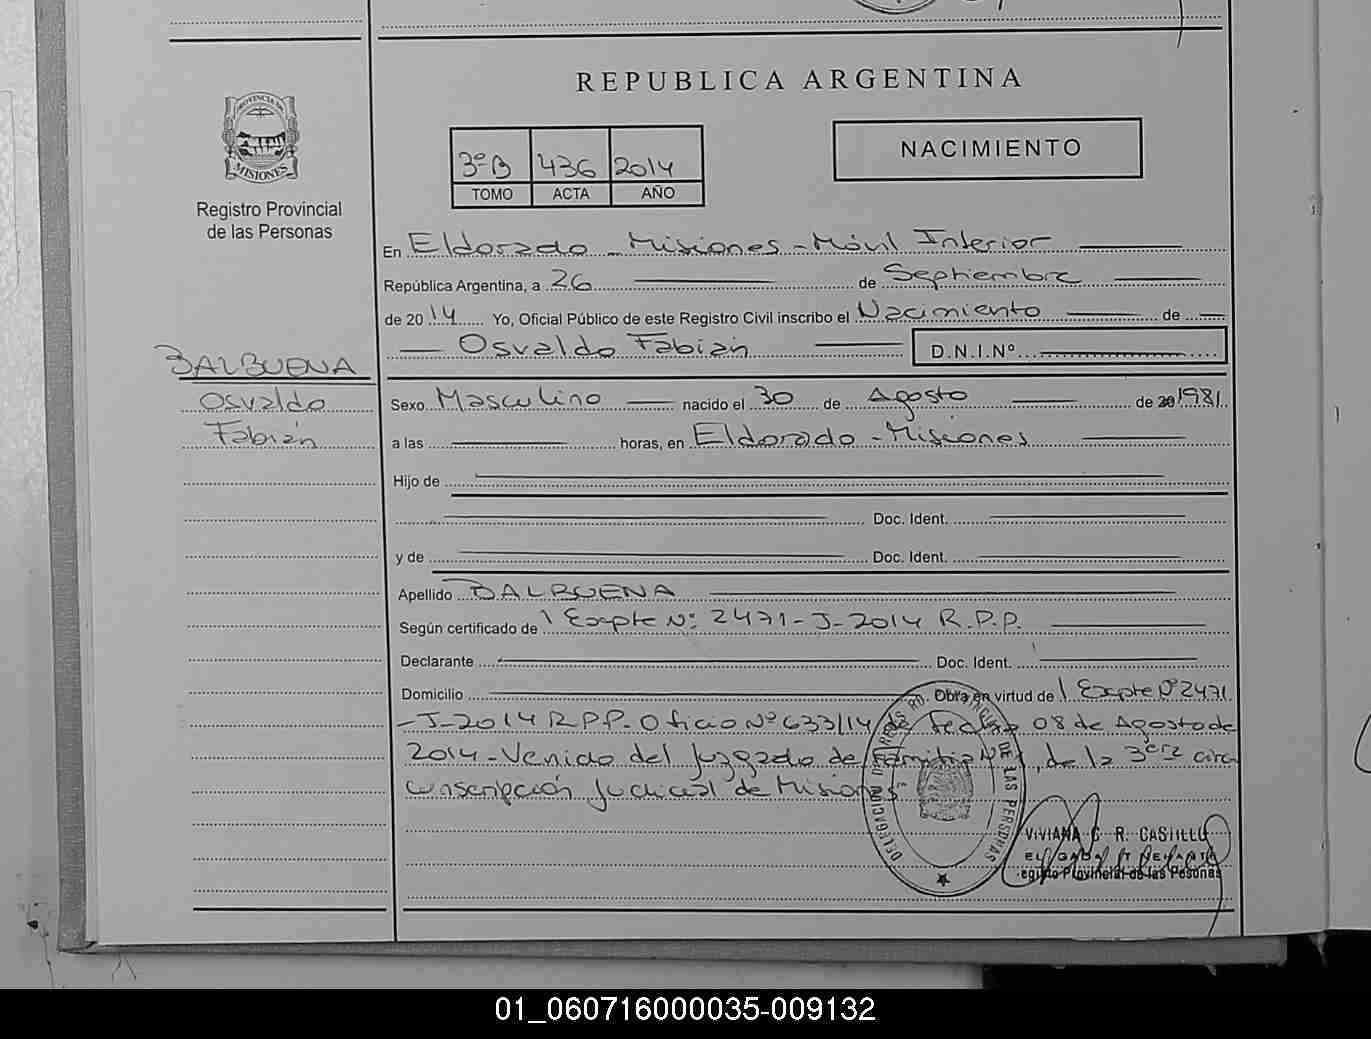 REPUBLICA ARGENTINA
PROVINCIA DE
MISIONES
Registro Provincial
de las Personas
3º B 436 2014
TOMO ACTA AÑO
NACIMIENTO
En Eldorado - Misiones - Móvil Interior
República Argentina, a 26 de Septiembre
de 2014 Yo, Oficial Público de este Registro Civil inscribo el Nacimiento de
Osvaldo Fabián D.N.I.Nº
BALBUENA
Osvaldo
Fabián
Sexo Masculino nacido el 30 de Agosto de 20 1981
a las horas, en Eldorado - Misiones
Hijo de
Doc. Ident.
y de Doc. Ident.
Apellido BALBUENA
Según certificado de 1 Expte Nº 2471-J-2014 R.P.P.
Declarante Doc. Ident.
Domicilio Obra en virtud de 1 Expte Nº 2471
-J-2014 R.P.P. Oficio Nº 633/14 de fecha 08 de Agosto de
2014 - Venido del Juzgado de Familia de la 3era circ
unscripción Judicial de Misiones
DELEGACION DE LAS PERSONAS
VIVIANA C R. CASTILLO
Provincial de las Pesonas
01_060716000035-009132